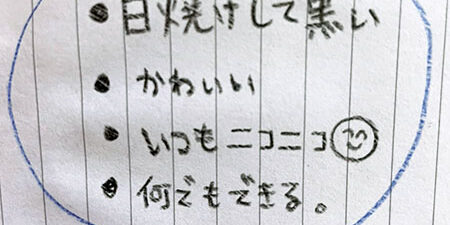 ● 日焼けして黒い
● かわいい
● いつもニコニコ
● 何でもできる。